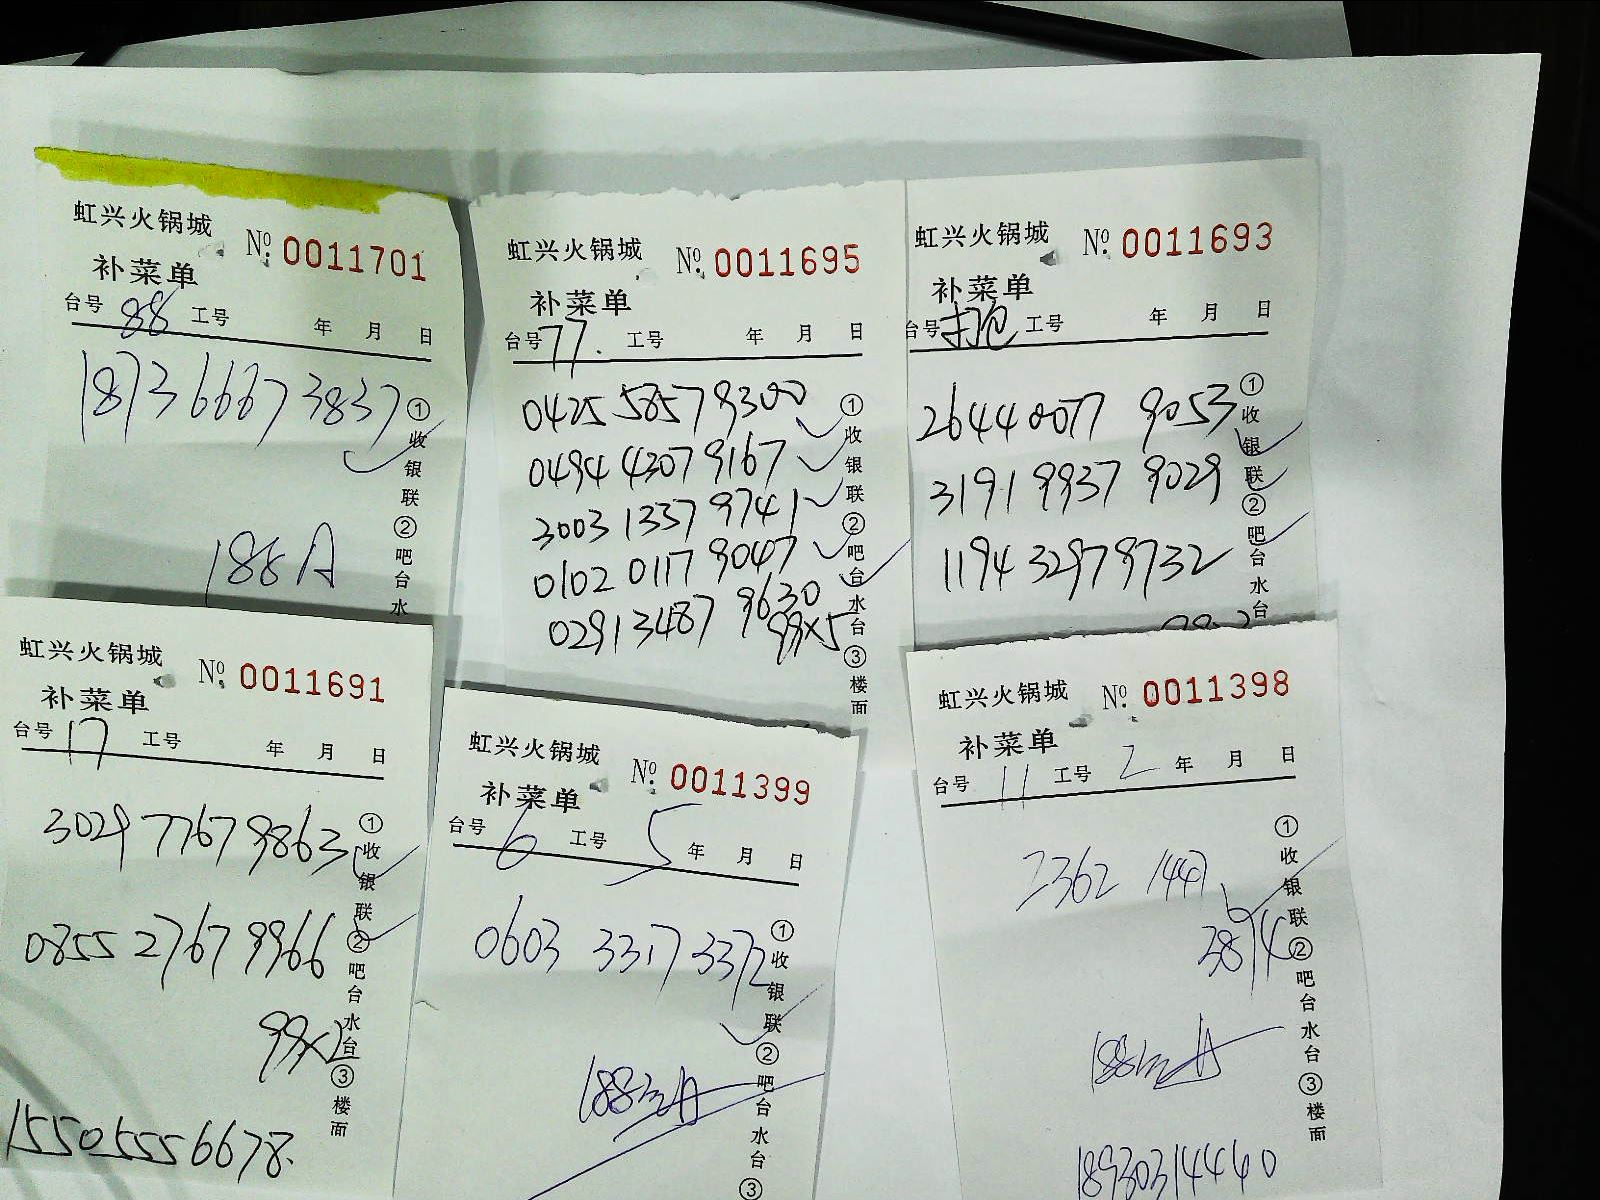 虹兴火锅城 №: 0011701
补菜单
台号 88 工号 年 月 日
187366673837
188A
①收银联 ②吧台水
虹兴火锅城 №: 0011695
补菜单
台号 77. 工号 年 月 日
0425 5857 9300
0494 4307 9167
3003 1337 9741
0102 0117 9047
0291 3487 9630
99×5
①收银联 ②吧台水台 ③楼面
虹兴火锅城 №: 0011693
补菜单
台号 打包 工号 年 月 日
2644 0077 9053
3191 9937 9029
1194 3297 9732
①收银联 ②吧台
虹兴火锅城 №: 0011691
补菜单
台号 17 工号 年 月 日
3029 7767 9863
0855 2767 9966
99×2
15505556678.
①收银联 ②吧台水台 ③楼面
虹兴火锅城 №: 0011399
补菜单
台号 6 工号 5 年 月 日
0603 3317 3372
188元A
①收银联 ②吧台水台 ③
虹兴火锅城 №: 0011398
补菜单
台号 11 工号 2 年 月 日
2362 1447
3874
188元A
18930314440
①收银联 ②吧台水台 ③楼面